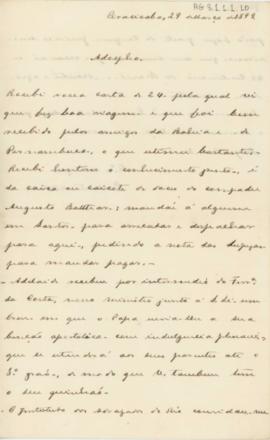 AG 3.1.1.1.10
Piracicaba, 29 março de 1898
Adolpho.
Recebi sua carta de 24, pela qual vi
que fez boa viagem e que foi bem
recebido pelos amigos da Bahia e de
Pernambuco, o que estimei bastante.
Recebi o conhecimento junto, é
da caixa ou caixote do sacco do compadre
Augusto ; mandai-á alguem
em Santos, para arrecadar e despachar
para aqui, pedindo a nota das despezas
para mandar pagar. —
- Adelaide recebeu por intermedio do
da Costa, nosso ministro junto á S. Sé: um
em que o Papa envia-lhe a sua
benção apostolica com indulgencia plenaria,
que se estenderá aos seus parentes até o
3.º gráo, de modo que V. tambem tem
o seu quinhão.
- O Instituto dos advogados do Rio convidou-me